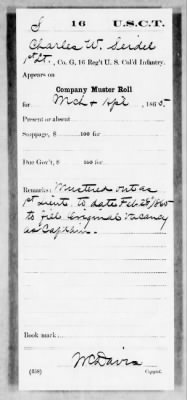 S 16 U.S.C.T.
Charles W. Seidel
1st Lt., Co. G, 16 Reg't U. S. Col'd Infantry.
Appears on
Company Muster Roll
for Mch & Apl, 1865
Present or absent
Stoppage, $ 100 for
Due Gov't, $ 100 for
Remarks: Mustered out as
1st Lieut. to date Feb 28/1865
to fill original vacancy
as Captain.
Book mark:
McDavis
(358) Copyist.